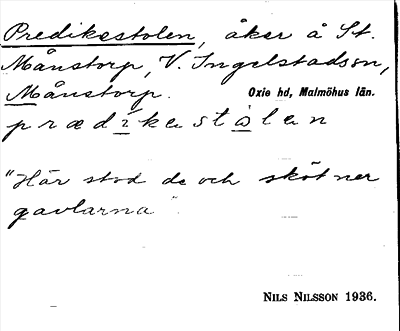 Predikestolen, åker å St.
Månstorp, V. Ingelstadssn,
Månstorp. Oxie hd, Malmöhus län.
prædikestolen
"Här stod de och skötner
gavlarna".
NILS NILSSON 1936.